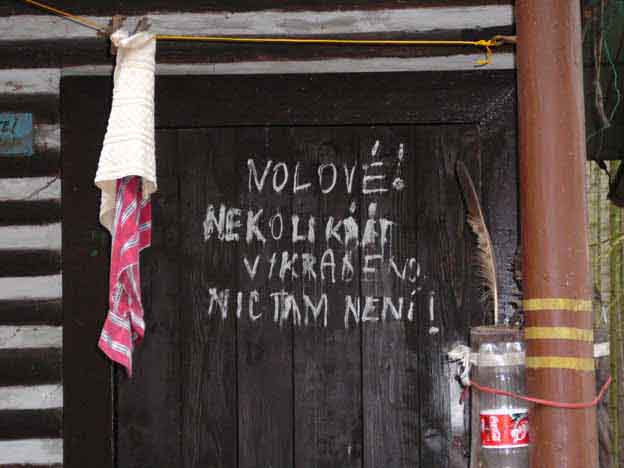 VOLOVÉ!
NEKOLIKÁÁT
VIKRADENO.
NIC TAM NENÍ!